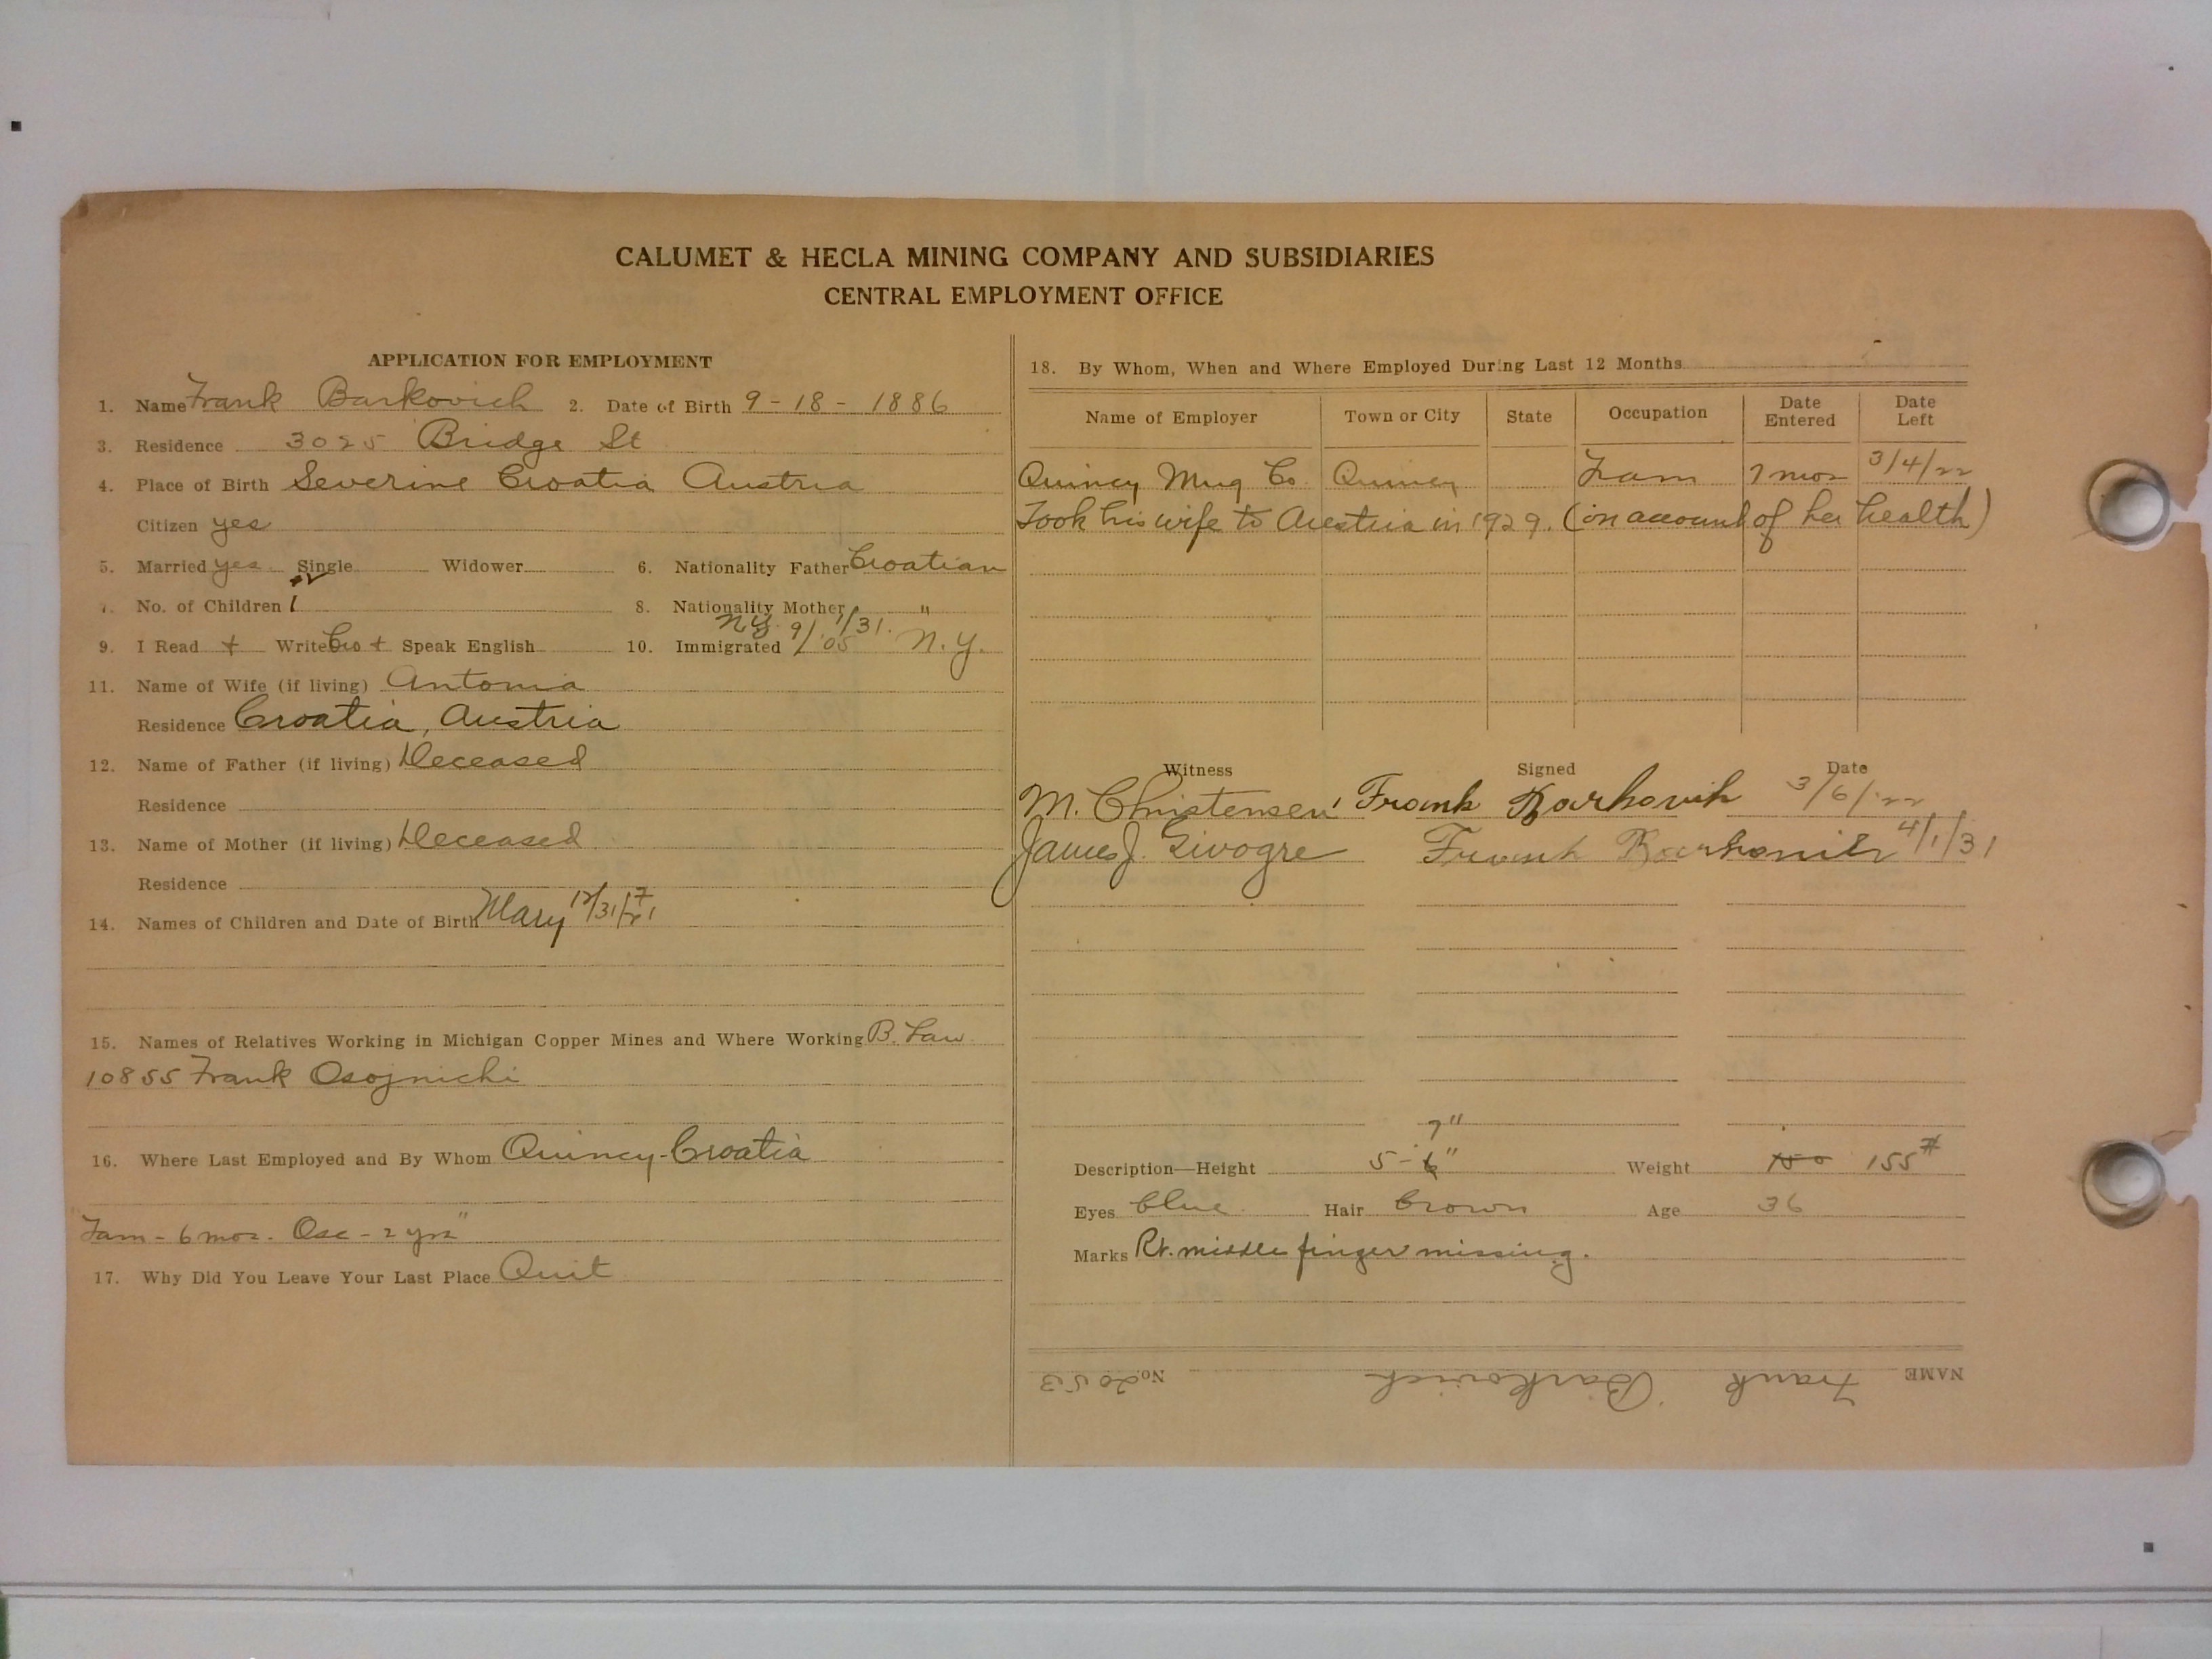 CALUMET & HECLA MINING COMPANY AND SUBSIDIARIES
CENTRAL EMPLOYMENT OFFICE
APPLICATION FOR EMPLOYMENT
1. Name Frank Barkovich 2. Date of Birth 9-18-1886
3. Residence 3025 Bridge St
4. Place of Birth Severine Croatia Austria
Citizen yes
5. Married yes Single Widower 6. Nationality Father Croatian
7. No. of Children 1 8. Nationality Mother "
N.Y. 9/ 1/31.
9. I Read + Write Cro + Speak English 10. Immigrated 9/05 N.Y.
11. Name of Wife (if living) Antonia
Residence Croatia, Austria
12. Name of Father (if living) Deceased
Residence
13. Name of Mother (if living) Deceased
Residence
14. Names of Children and Date of Birth Mary 12/31/
15. Names of Relatives Working in Michigan Copper Mines and Where Working B. Law
10855 Frank Osojnichi
16. Where Last Employed and By Whom Quincy-Croatia
Tam - 6 mos. Osc - 2 yrs"
17. Why Did You Leave Your Last Place Quit
18. By Whom, When and Where Employed During Last 12 Months
Name of Employer Town or City State Occupation Date Entered Date Left
Quincy Mng Co. Quincy Tram 7 mos 3/4/22
Took his wife to Austria in 1929. (on account of her health)
Witness Signed Date
M. Christensen Frank Barkovich 3/6/22
James J. Givogre Frank Barkovich 4/1/31
7"
Description—Height 5-6" Weight 150 155#
Eyes blue Hair brown Age 36
Marks Rt. middle finger missing.
NAME Frank Barkovich No. 2053